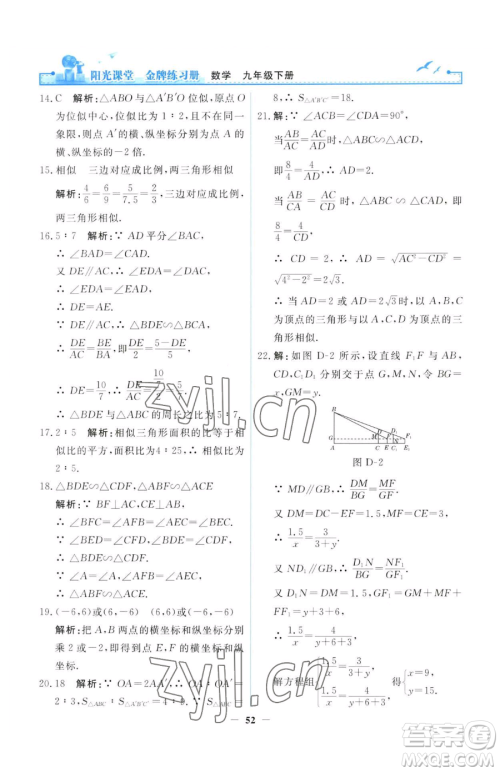 阳光课堂 金牌练习册 数学 九年级下册
14. C 解析:△ABO与△A′B′O位似,原点O
为位似中心,位似比为1∶2,且不在同一
象限,则A′的横、纵坐标分别为A点的
横、纵坐标的-2倍.
15. 相似 三边对应成比例,两三角形相似
解析:4/6=6/9=5/7.5=2/3,三边对应成比例,
两三角形相似.
16. 5∶7 解析:∵ AD平分∠BAC,
∴ ∠BAD=∠CAD.
又∵ DE∥AC,∴ ∠EDA=∠CAD.
∴ ∠EDA=∠EAD.
∴ DE=AE.
∵ DE∥AC,∴ △BDE∽△BCA.
∴ DE/AC=BE/BA,即DE/2=(5-DE)/5,
∴ DE=10/7. ∴ DE/AC=(10/7)/2=5/7.
∴ △BDE与△ABC的周长之比为5∶7.
17. 2∶5 解析:相似三角形面积的比等于相
似比的平方,面积比为4∶25,∴ 相似比为
2∶5.
18. △BDE∽△CDF,△ABF∽△ACE
解析:∵ BF⊥AC,CE⊥AB,
∴ ∠BFC=∠BFA=∠CEB=∠CEA=90°.
又∵ ∠CDF=∠BDE,∠A=∠A,
∴ △BDE∽△CDF,△ABF∽△ACE.
19. (-6,6)或(6,-6) (-6,0)或(6,0)
解析:把A,B两点的横坐标和纵坐标分别
乘2或-2,即可得到点A′,B′的坐标.
20. 18 解析:∵ OA=2AA′,∴ OA∶OA′=
2∶3,∴ S△ABC∶S△A′B′C′=4∶9,∵ S△ABC=
8,∴ S△A′B′C′=18.
21. 解:∵ ∠ABC=∠CDA=90°,
当AB/AC=AC/AD时,△ABC∽△CDA,
即8/4=4/AD,∴ AD=2.
当AB/CA=AC/CD时,△ABC∽△ADC,即
8/4=4/CD,
∴ CD=2,∴ AD=√(AC²-CD²)=
√(4²-2²)=2√3.
∴ 当AD=2或AD=2√3时,以A,B,C
为顶点的三角形与以A,C,D为顶点的三
角形相似.
22. 解:如图D-2所示,设直线F₁F与AB,
CD,C₁D₁分别交于点G,M,N,BG=
x,GM=y.
B
D D₁
G M F N F₁
A C E C₁ E₁
图D-2
∵ MD∥GB,∴ DM/BG=MF/GF.
又∵ DM=DC-CM=1.5,MF=CE=3,
∴ 1.5/x=3/(3+y).
又∵ ND₁∥GB,∴ D₁N/BG=NF₁/GF₁.
∴ 1.5/x=4/(y+6+3).
解方程组{1.5/x=3/(3+y), 1.5/x=4/(y+6+3),得{x=9, y=15.
52
zyjl.cn
zyjl.cn